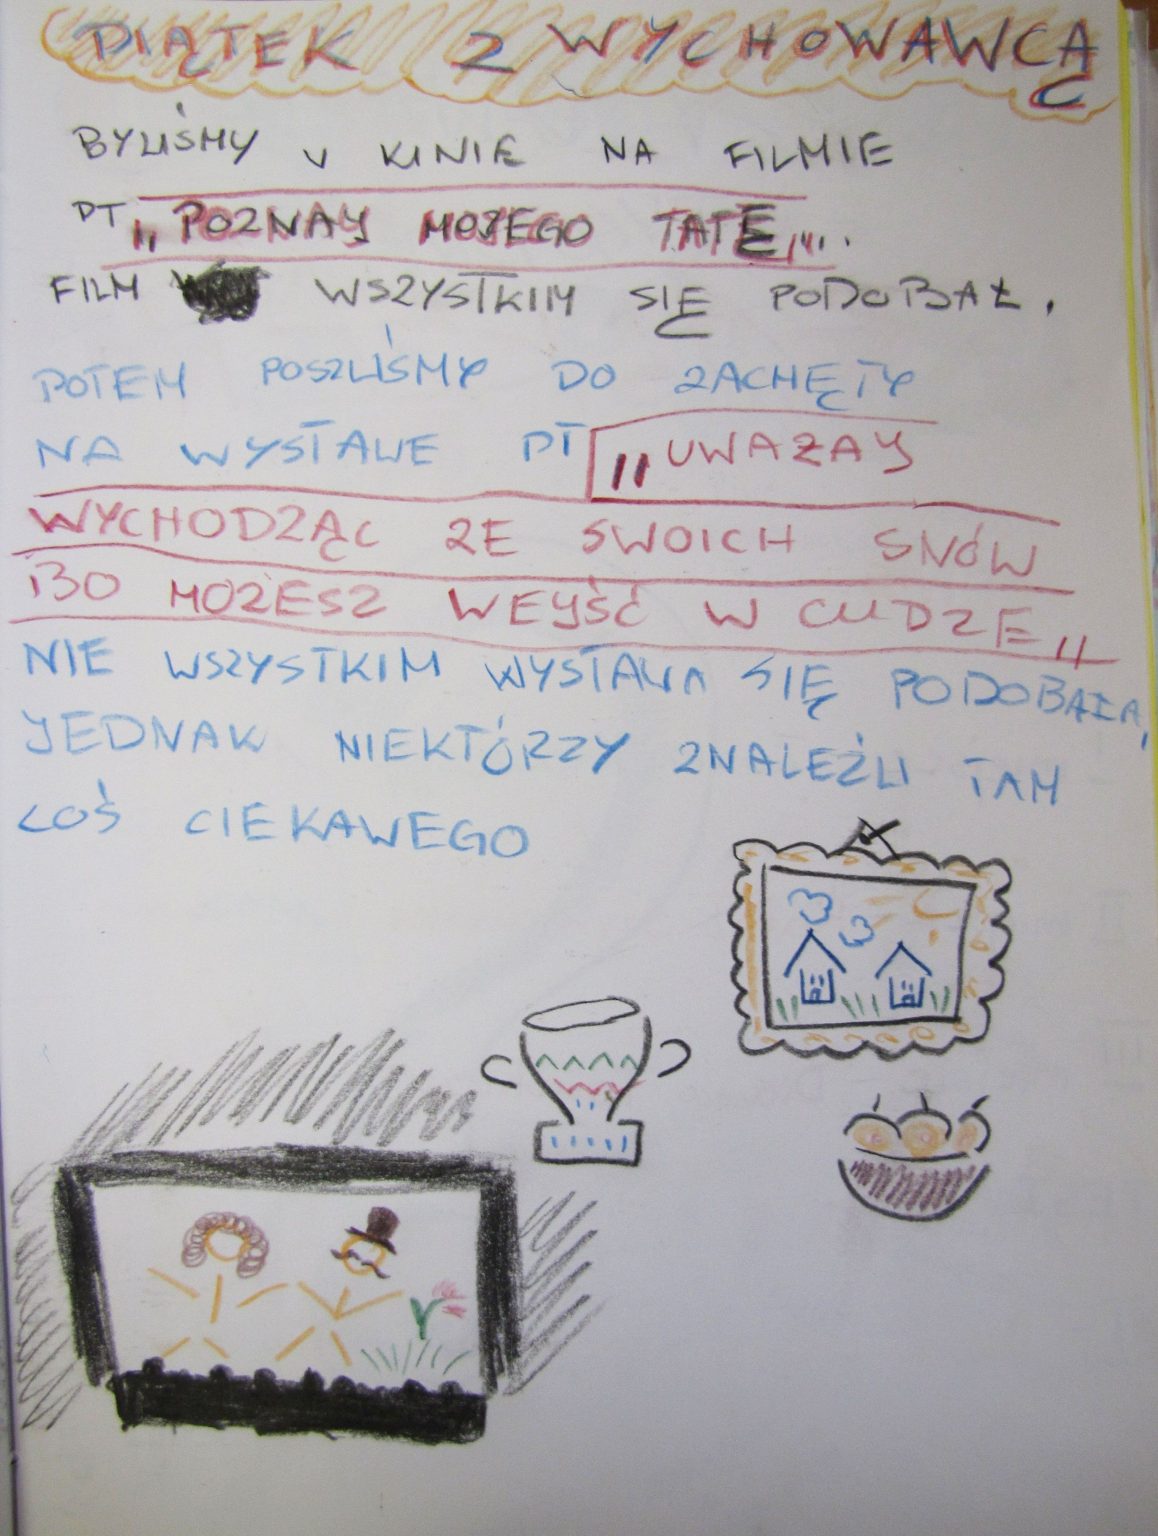 PIĄTEK Z WYCHOWAWCĄ
BYLIŚMY W KINIE NA FILMIE
PT „POZNAJ MOJEGO TATĘ„.
FILM WSZYSTKIM SIĘ PODOBAŁ.
POTEM POSZLIŚMY DO ZACHĘTY
NA WYSTAWE PT „UWAŻAJ
WYCHODZĄC ZE SWOICH SNÓW
BO MOŻESZ WEJŚĆ W CUDZE„
NIE WSZYSTKIM WYSTAWA SIĘ PODOBAŁA,
JEDNAK NIEKTÓRZY ZNALEŹLI TAM
COŚ CIEKAWEGO